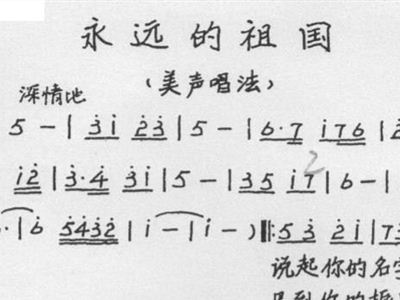 永远的祖国
(美声唱法)
深情地
5 - | 3̇ i̇ 2̇ 3̇ | 5 - | 6·7 i̇ 7 6 |
i̇ 2̇ | 3̇·4̇ 3̇ i̇ | 5 - | 3 5 i̇ 7 | 6 - |
6 5̇ 4̇ 3̇ 2̇ | i̇ - | i̇ - ) ‖: 5 3̇ 2̇ i̇ |
说起你的名字